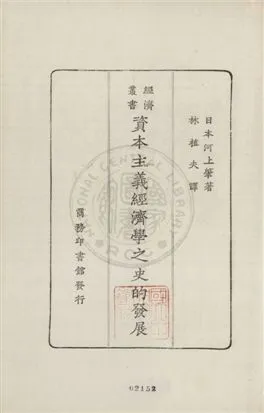 日本河上肇著
林植夫譯
經濟叢書
資本主義經濟學之史的發展
商務印書館發行
NATIONAL CENTRAL LIBRARY
02152